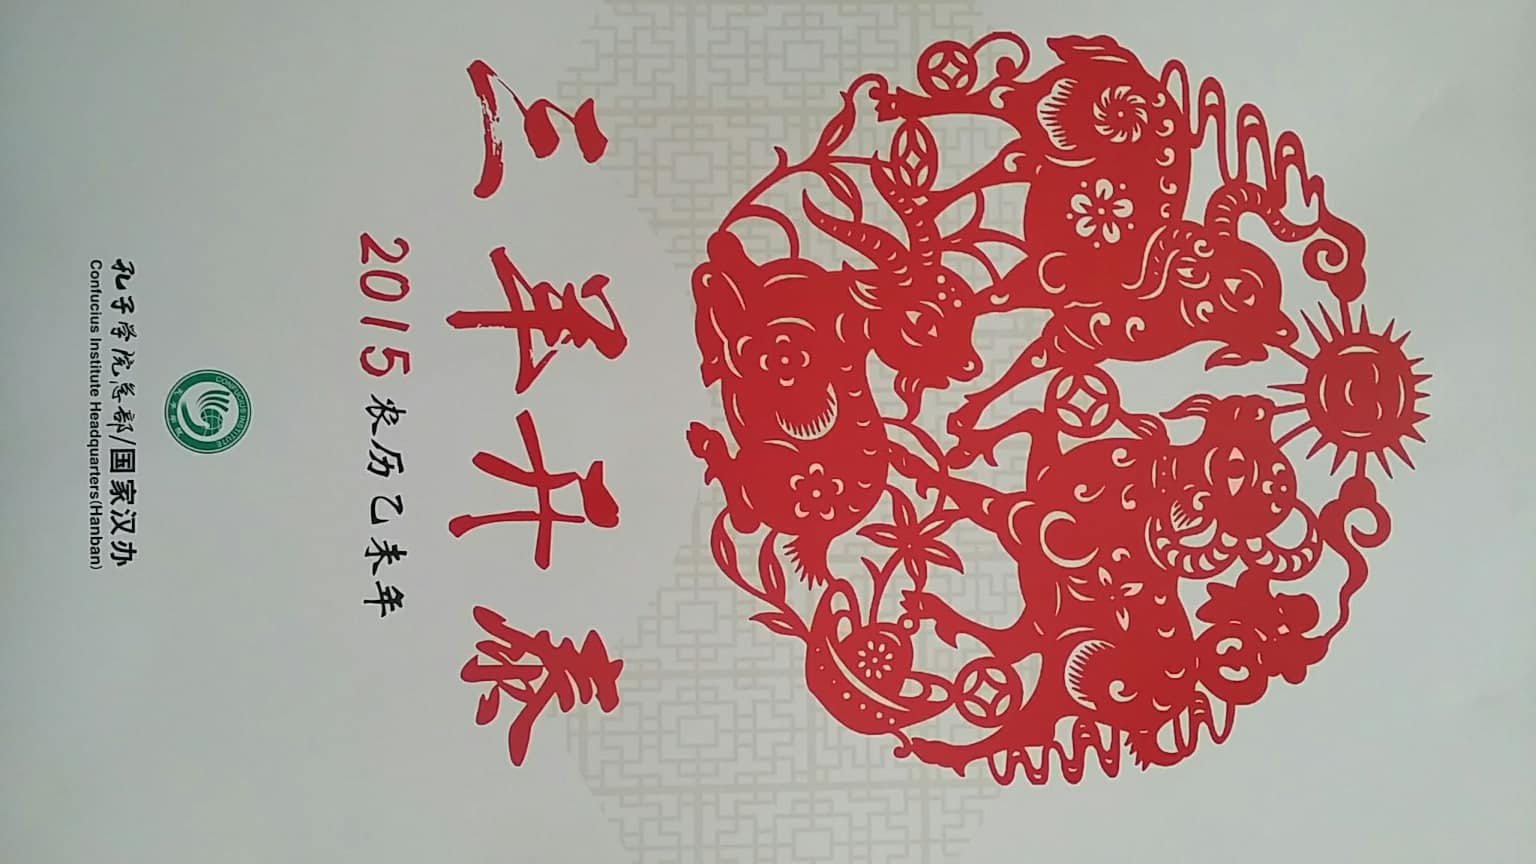 三羊开泰
2015农历乙未年
CONFUCIUS INSTITUTE
孔子学院
孔子学院总部/国家汉办
Confucius Institute Headquarters(Hanban)